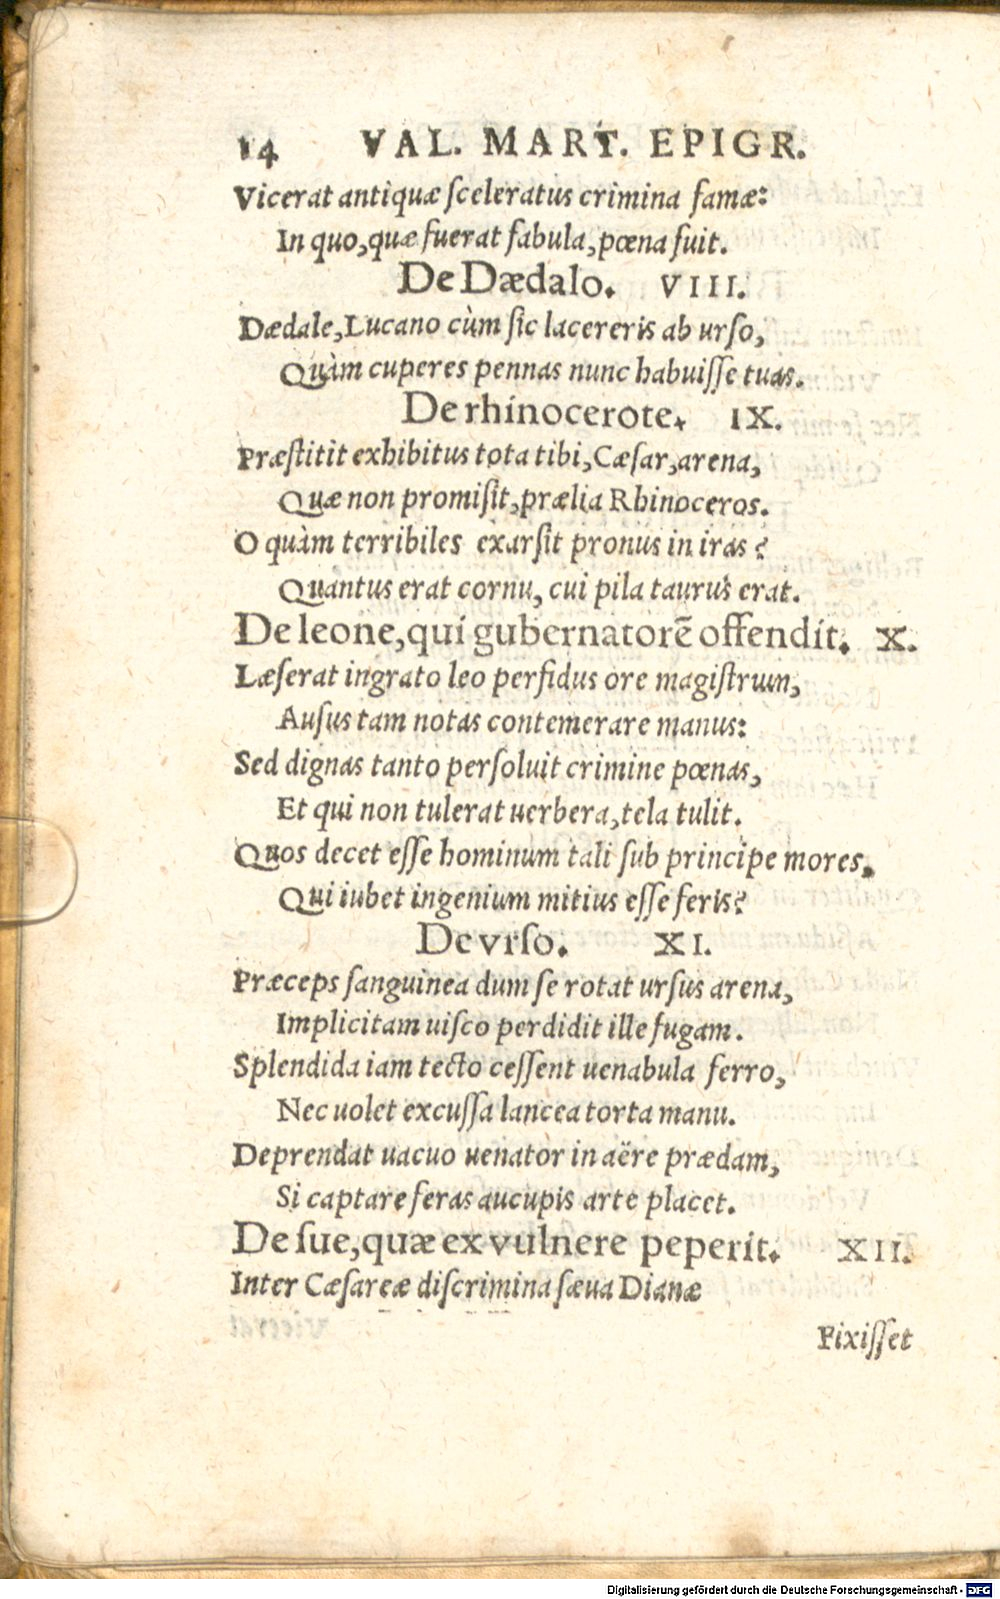 14 VAL. MART. EPIGR.
Vicerat antiquæ ſceleratus crimina famæ:
In quo,quæ fuerat fabula,pœna fuit.
De Dædalo. VIII.
Dædale,Lucano cùm ſic lacereris ab urſo,
Quàm cuperes pennas nunc habuiſſe tuas.
De rhinocerote. IX.
Præſtitit exhibitus tota tibi,Cæſar,arena,
Quæ non promiſit,prælia Rhinoceros.
O quàm terribiles exarſit pronus in iras?
Quantus erat cornu, cui pila taurus erat.
De leone,qui gubernatorē offendit. X.
Læſerat ingrato leo perfidus ore magiſtrum,
Auſus tam notas contemerare manus:
Sed dignas tanto perſoluit crimine pœnas,
Et qui non tulerat uerbera,tela tulit.
Quos decet eſſe hominum tali ſub principe mores,
Qui iubet ingenium mitius eſſe feris?
De vrſo. XI.
Præceps ſanguinea dum ſe rotat urſus arena,
Implicitam uiſco perdidit ille fugam.
Splendida iam tecto ceſſent uenabula ferro,
Nec uolet excuſſa lancea torta manu.
Deprendat uacuo uenator in aëre prædam,
Si captare feras aucupis arte placet.
De ſue,quæ ex vulnere peperit. XII.
Inter Cæſareæ diſcrimina ſæua Dianæ
Fixiſſet
Digitalisierung gefördert durch die Deutsche Forschungsgemeinschaft - DFG